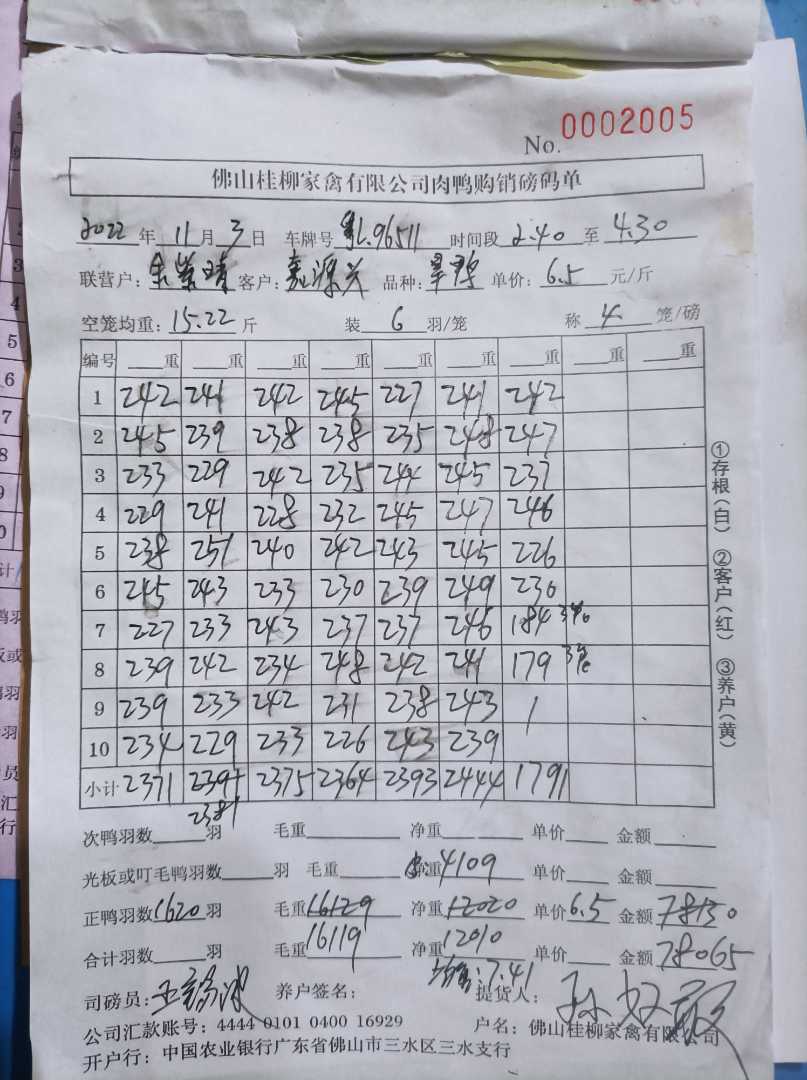 No. 0002005
佛山桂柳家禽有限公司肉鸭购销磅码单
2022年11月3日 车牌号 粤L.96511 时间段 2.40 至 4.30
联营户: 客户:嘉源兴 品种: 单价:6.5元/斤
空笼均重:15.22斤 装6羽/笼 称4笼/磅
编号 重 重 重 重 重 重 重 重 重
1 242 241 242 245 227 241 242
2 245 239 238 238 235 248 247
3 233 229 242 235 244 245 237
4 229 241 228 232 245 247 246
5 238 251 240 242 243 245 226
6 245 243 233 230 239 249 230
7 227 233 243 237 237 246 184 3笼
8 239 242 234 248 242 241 179 3笼
9 239 233 242 231 238 243 /
10 234 229 233 226 243 239
小计 2371 2391 2375 2364 2393 2444 1791
2381
①存根(白) ②客户(红) ③养户(黄)
次鸭羽数 羽 毛重 净重 单价 金额
光板或叮毛鸭羽数 羽 毛重 净重 4109 单价 金额
正鸭羽数1620羽 毛重16129 净重12020 单价6.5 金额78130
合计羽数 羽 毛重16119 净重12010 单价 金额78065
均重:7.41
司磅员: 养户签名: 提货人:
公司汇款账号:4444 0101 0400 16929 户名:佛山桂柳家禽有限公司
开户行:中国农业银行广东省佛山市三水区三水支行